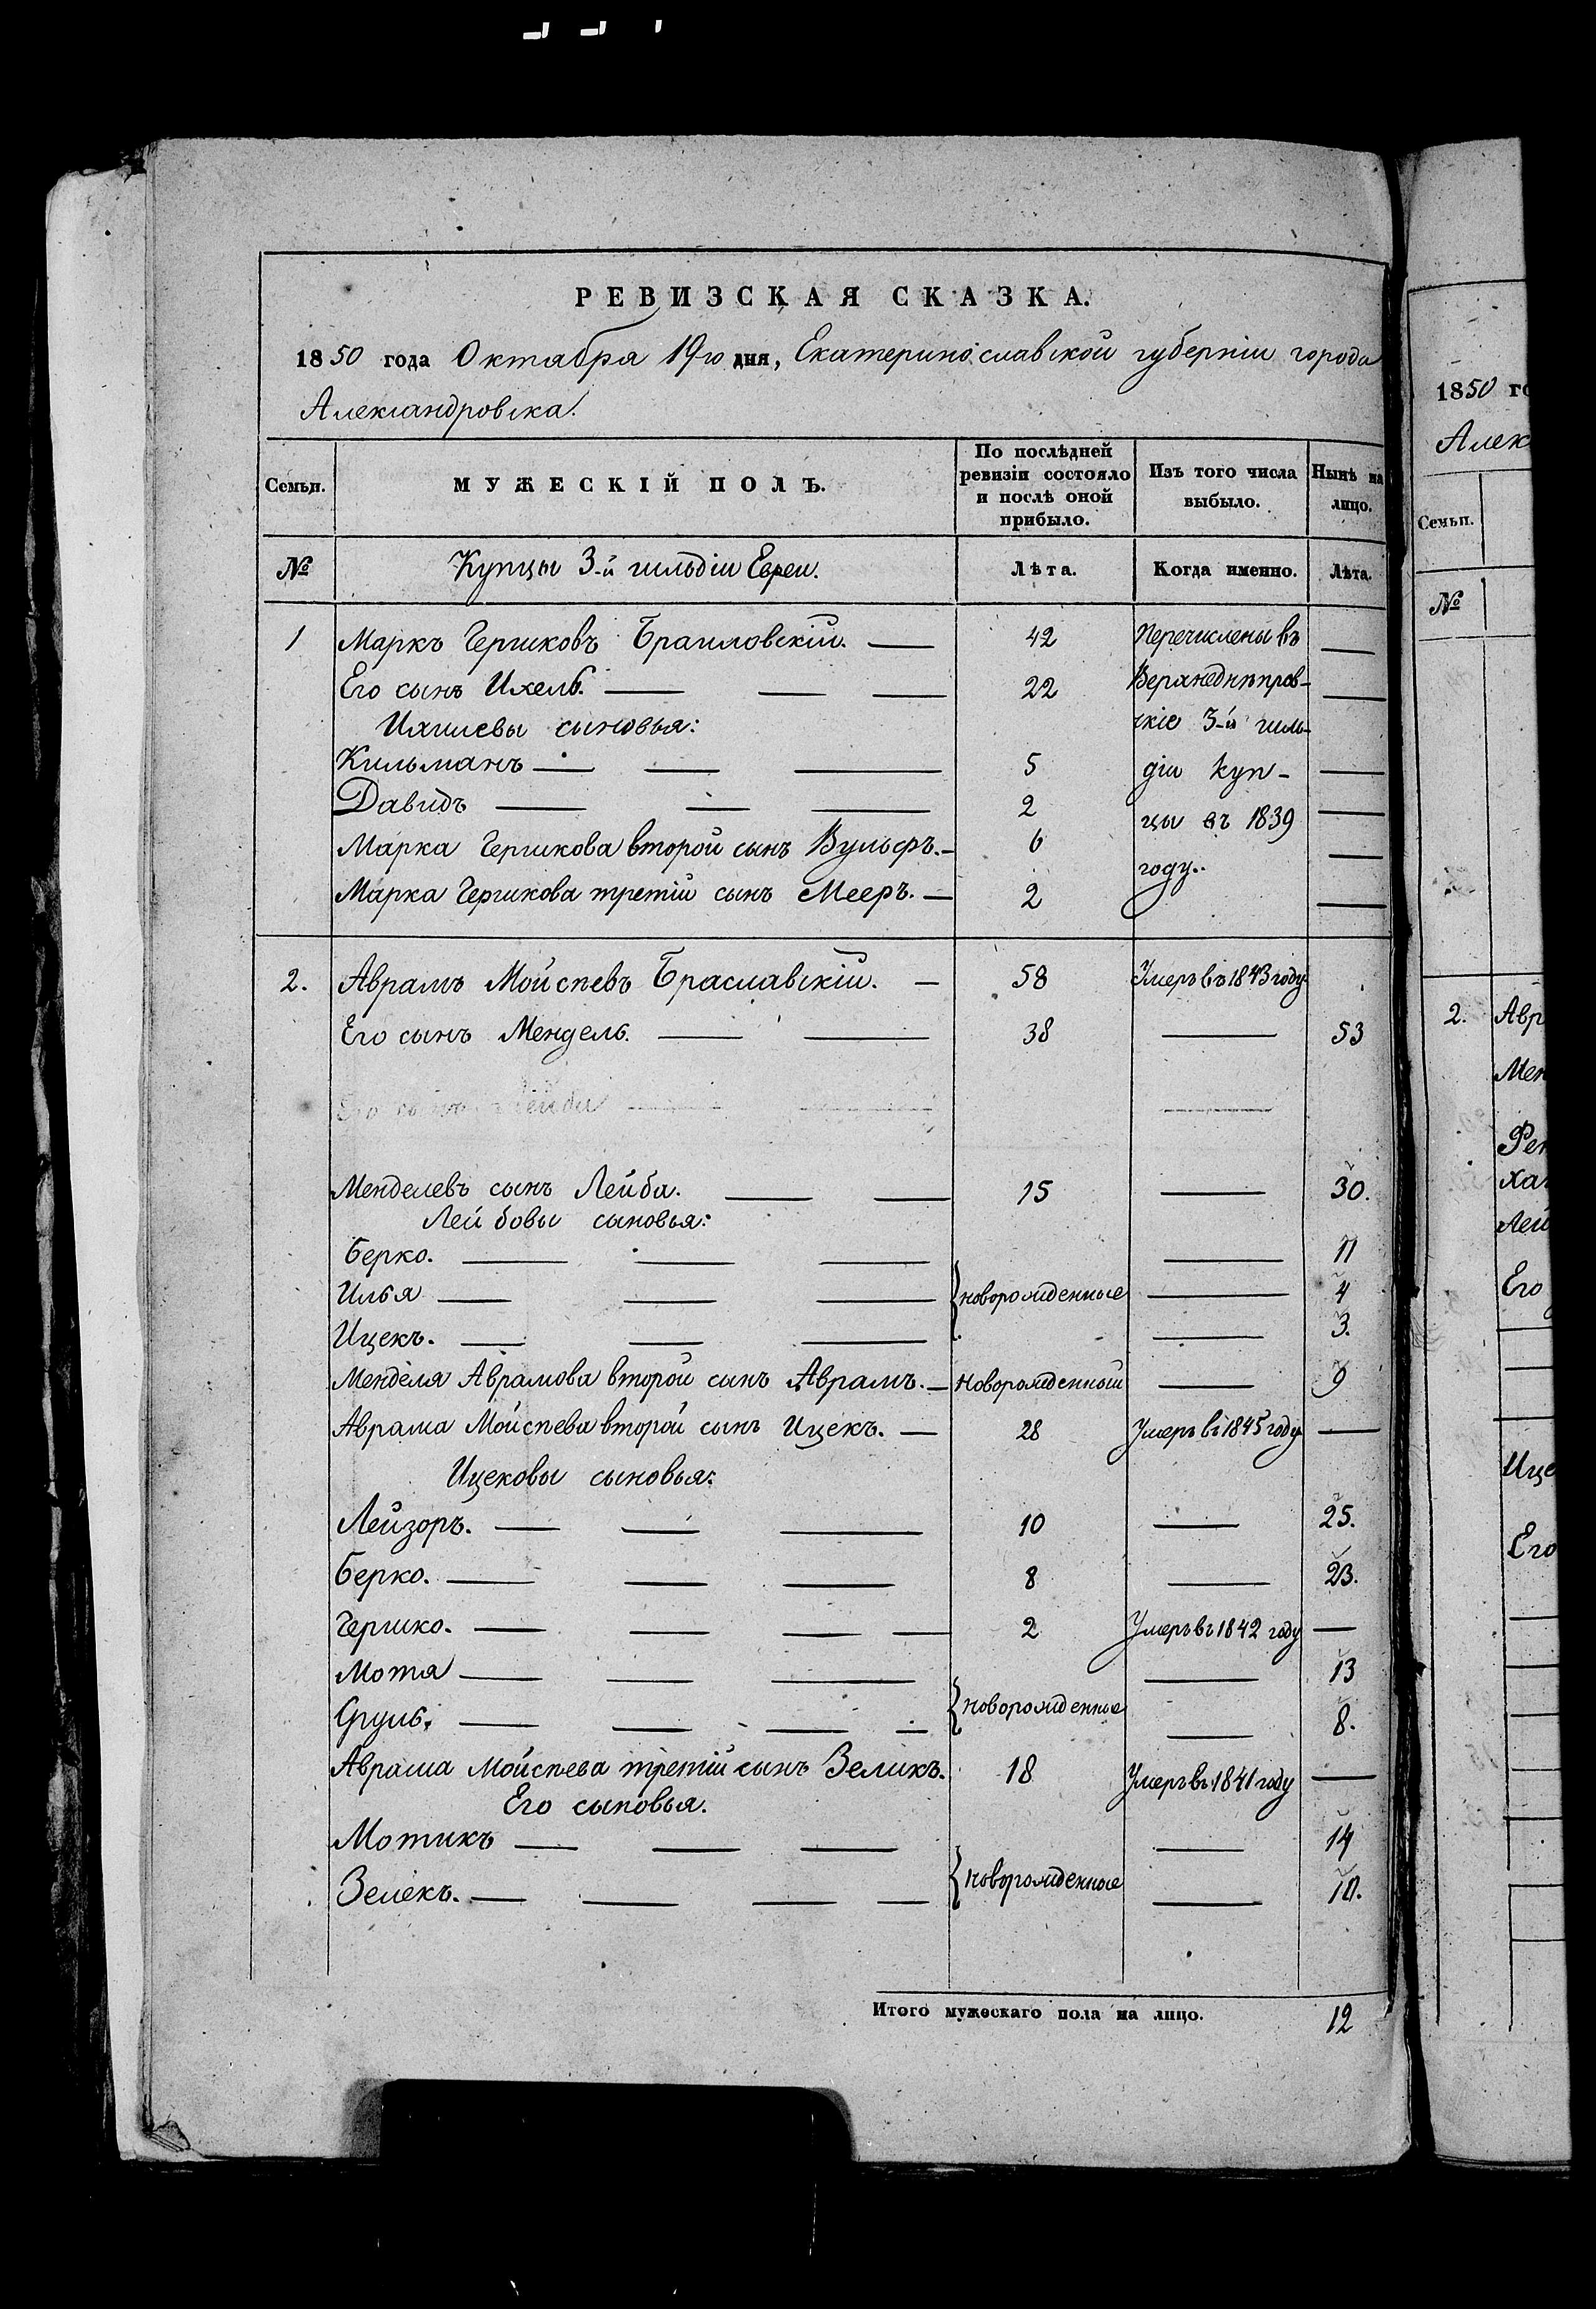 РЕВИЗСКАЯ СКАЗКА.
1850 года Октября 19го дня, Екатеринославской губерніи города
Александровска.
Семьи.
МУЖЕСКІЙ ПОЛЪ.
По послѣдней ревизіи состояло и послѣ оной прибыло.
Изъ того числа выбыло.
Нынѣ на лицо.
№ Купцы 3-й гильдіи Евреи. Лѣта. Когда именно. Лѣта.
1 Маркъ Гершковъ Браиловскій. — 42 Перечислены въ —
Его сынъ Ихель. — — — 22 Верхнеднѣпров- —
Ихилевы сыновья: скіе 3-й гиль-
Кильманъ — — — 5 діи куп- —
Давидъ — — — 2 цы въ 1839 —
Марка Гершкова второй сынъ Вульфъ. — 6 году. —
Марка Гершкова третій сынъ Мееръ. — 2 —
2. Аврамъ Мойсѣевъ Браславскій. — 58 Умеръ въ 1843 году
Его сынъ Мендель. — — 38 — 53
Его сынъ Лейба — — —
Менделевъ сынъ Лейба. — — 15 — 30.
Лейбовы сыновья:
Берко. — — — — 11
Илья — — — { новорожденные — 4
Ицекъ. — — — — 3.
Менделя Аврамова второй сынъ Аврамъ. — Новорожденный — 9
Аврама Мойсѣева второй сынъ Ицекъ. — 28 Умеръ въ 1845 году —
Ицековы сыновья:
Лейзоръ. — — — 10 — 25.
Берко. — — — 8 — 23.
Гершко. — — — — 2 Умеръ въ 1842 году —
Мотя — — — — 13
Сруль. — — — — { новорожденные — 8.
Аврама Мойсѣева третій сынъ Зеликъ. 18 Умеръ въ 1841 году —
Его сыновья.
Мотикъ — — — — 14
Зелекъ. — — — — { новорожденные — 10.
Итого мужескаго пола на лицо. 12
1850 го
Алек
Семьи.
№
2. Авр
Мен
Лей
Его
Ице
Его